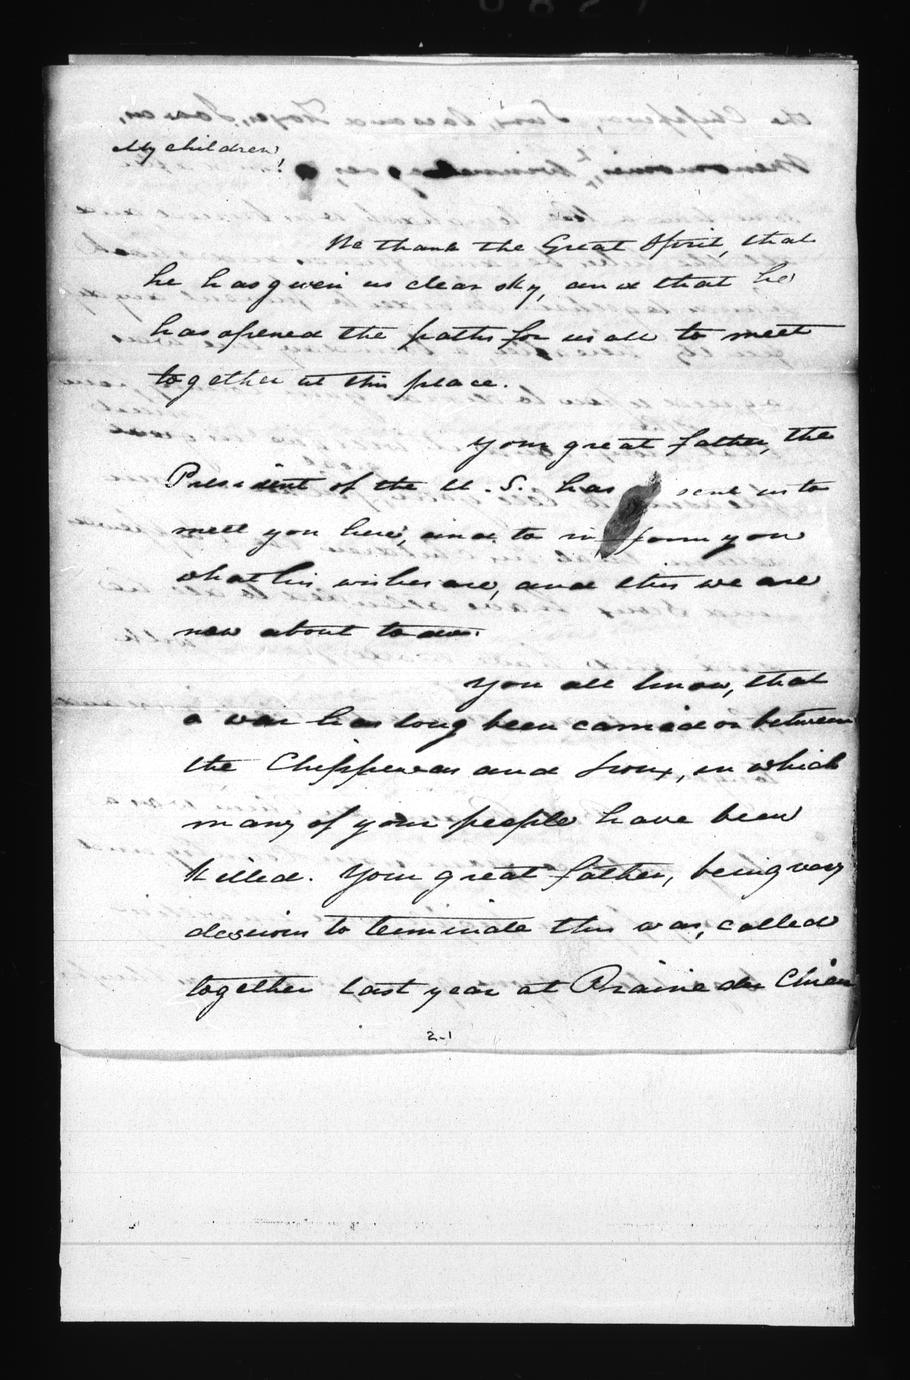 My children!
We thank the Great Spirit, that
he has given us clear sky, and that he
has opened the paths for us all to meet
together at this place.
Your great father, the
President of the U. S. has sent us to
meet you here, and to inform you
what his wishes are, and this we are
now about to do.
You all know, that
a war has long been carried on between
the Chippewas and Sioux, in which
many of your people have been
killed. Your great father, being very
desirous to terminate this war, called
together last year at Prairie du Chien
2-1